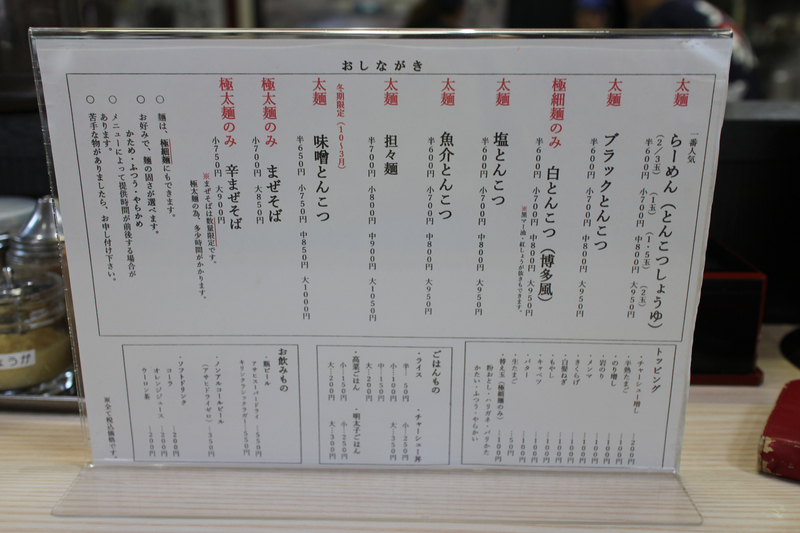 おしながき
太麺
一番人気
らーめん（とんこつしょうゆ）
（2／3玉）　（1玉）　（1・5玉）　（2玉）
半600円　小700円　中800円　大950円
太麺
ブラックとんこつ
半600円　小700円　中800円　大950円
極細麺のみ
白とんこつ（博多風）
半600円　小700円　中800円　大950円
※黒マー油・紅しょうが抜きもできます。
太麺
塩とんこつ
半600円　小700円　中800円　大950円
太麺
魚介とんこつ
半600円　小700円　中800円　大950円
太麺
担々麺
半700円　小800円　中900円　大1050円
冬期限定（10〜3月）
太麺
味噌とんこつ
半650円　小750円　中850円　大1000円
極太麺のみ
まぜそば
小700円　大850円
極太麺のみ
辛まぜそば
小750円　大900円
※まぜそばは数量限定です。
極太麺の為、多少時間がかかります。
○　麺は、極細麺にもできます。
○　お好みで、麺の固さが選べます。
かため・ふつう・やらかめ
○　メニューによって提供時間が前後する場合が
あります。
○　苦手な物がありましたら、お申し付け下さい。
トッピング
・チャーシュー増し　―200円
・半熟たまご　―100円
・のり増し　―100円
・岩のり　―100円
・メンマ　―100円
・きくらげ　―100円
・白髪ねぎ　―100円
・もやし　―100円
・キャベツ　―100円
・バター　―100円
・生たまご　―50円
・替え玉（極細麺のみ）　―100円
粉おとし・ハリガネ・バリかた
かたい・ふつう・やらかい
ごはんもの
・ライス
半―50円
小―100円
中―150円
大―200円
・チャーシュー丼
小―250円
大―350円
・高菜ごはん
小―150円
大―200円
・明太子ごはん
小―250円
大―350円
お飲みもの
・瓶ビール
アサヒスーパードライ　―550円
キリンクラシックラガー　―550円
・ノンアルコールビール
（アサヒドライゼロ）　―350円
・ソフトドリンク
コーラ　―200円
オレンジジュース　―200円
ウーロン茶　―200円
※全て税込価格です。
ょうが